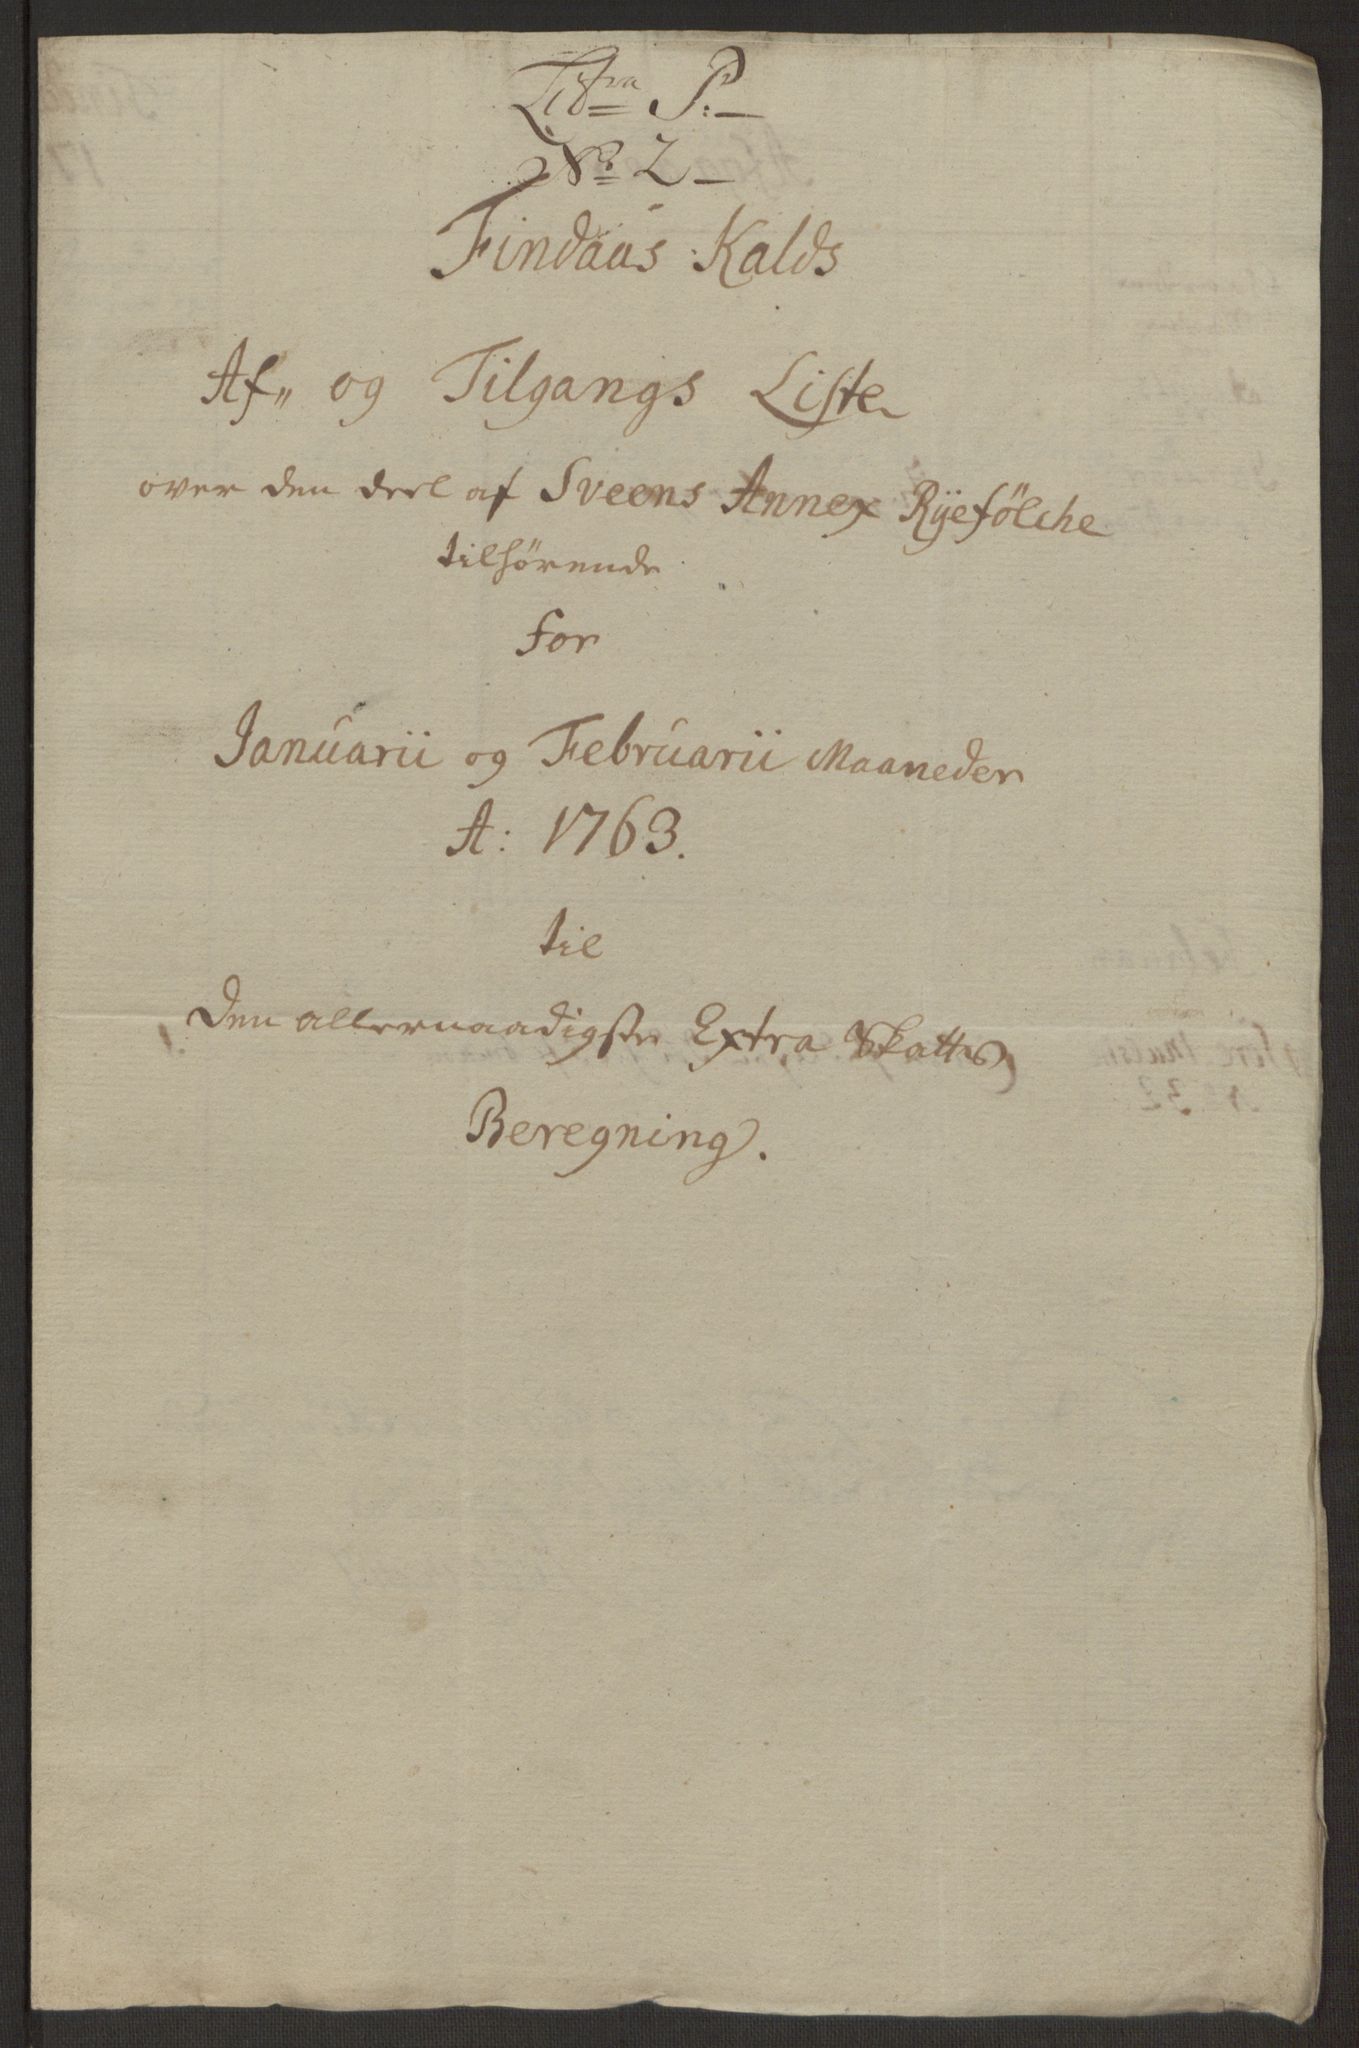 Litra P:
No 2
Findaas Kalds
Af,, og Tilgangs Liste
over den deel af Sveens Annex Ryefölche
tilhørende
for
Januarii og Februarii Maaneder
A: 1763.
til
Den allernaadigste Extra Skattes
Beregning.